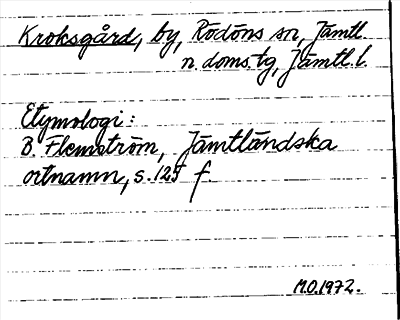 Kroksgård, by, Rödöns sn, Jämtl.
n. doms. tg, Jämtl. l.
Etymologi:
B. Flemström, Jämtländska
ortnamn, s. 125 f.
M.O. 1972.